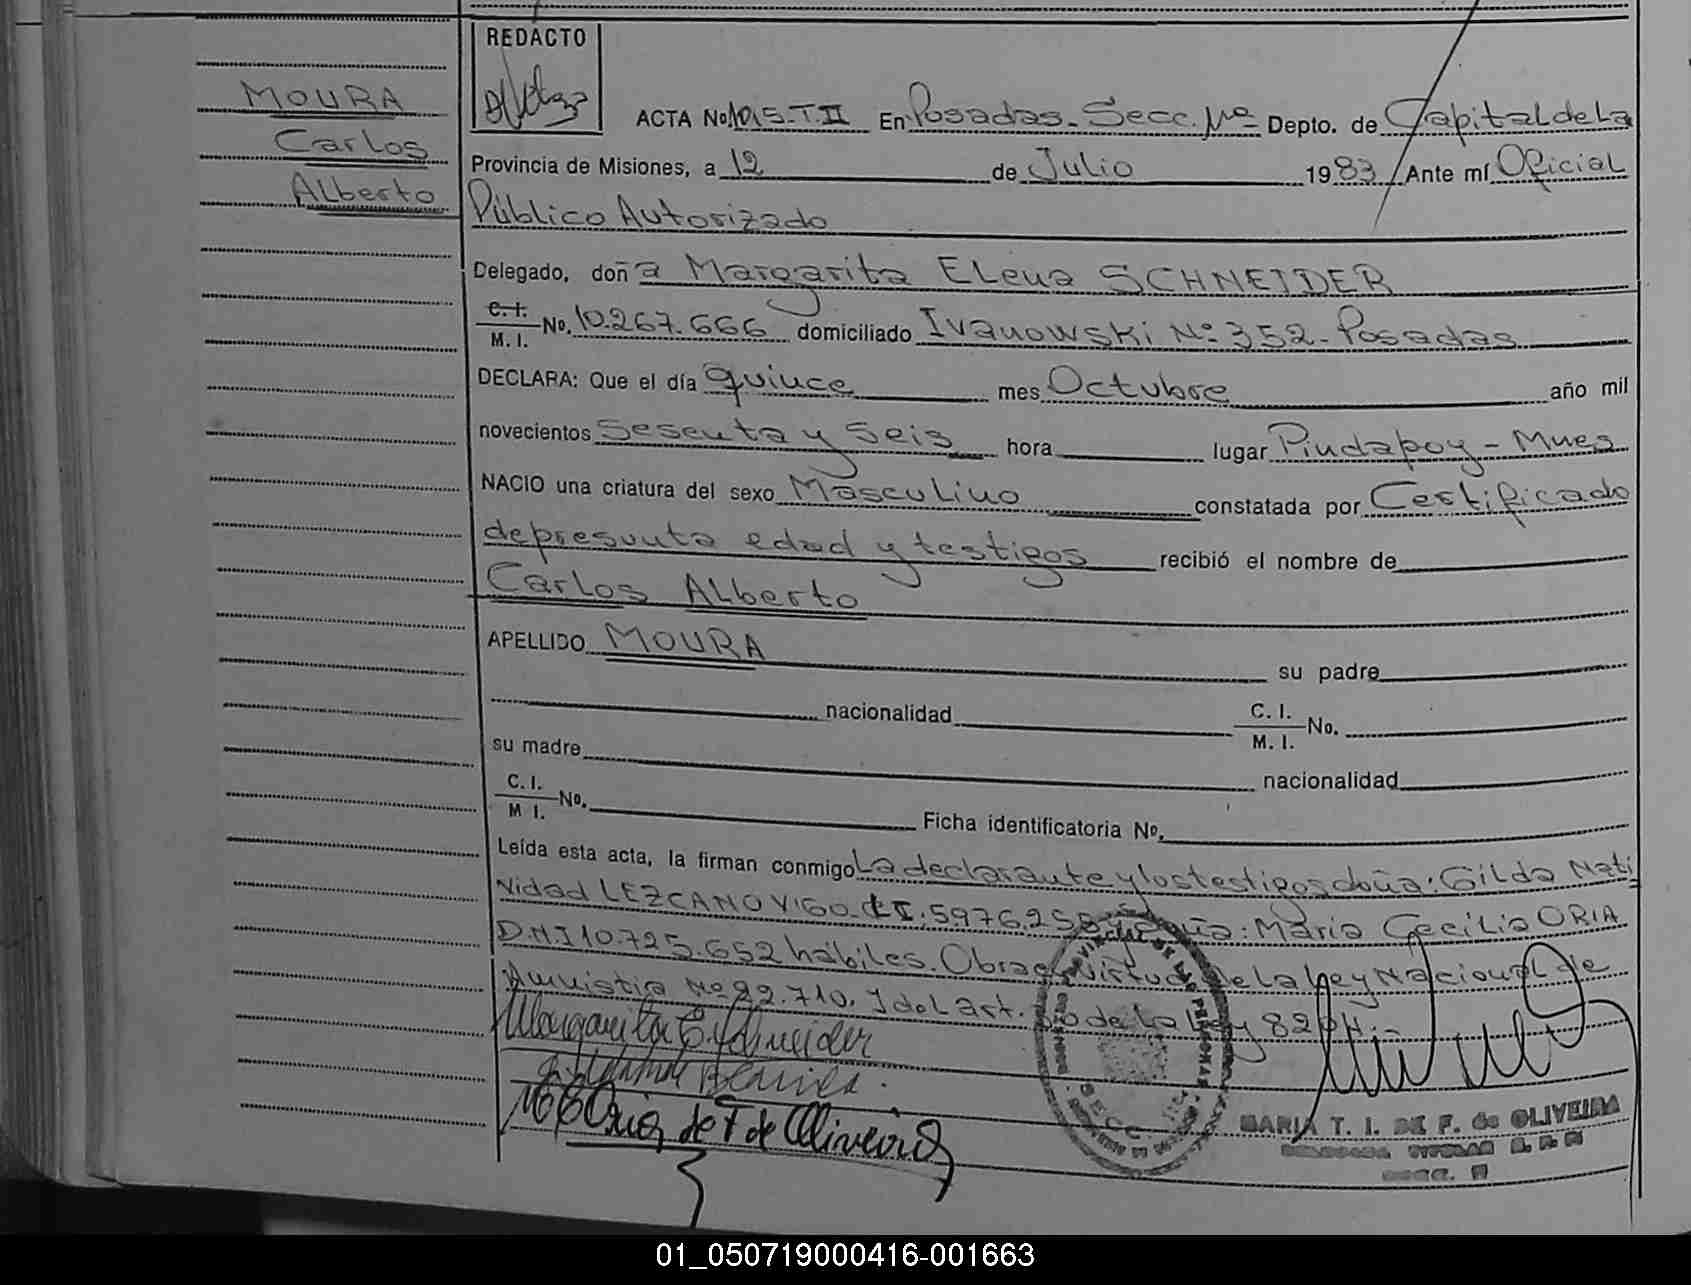 REDACTO
MOURA
Carlos
Alberto
ACTA No 1015-T.II En Posadas-Secc. Depto. de Capital de la
Provincia de Misiones, a 12 de Julio 1983 Ante mí Oficial
Público Autorizado
Delegado, doña Margarita Elena SCHNEIDER
C. I. M. I. No. 10.267.666 domiciliado Ivanowski Nº 352-Posadas
DECLARA: Que el día quince mes Octubre año mil
novecientos sesenta y seis hora lugar Pindapoy-Mnes
NACIO una criatura del sexo Masculino constatada por Certificado
de presunta edad y testigos recibió el nombre de
Carlos Alberto
APELLIDO MOURA su padre
nacionalidad C. I. M. I. No.
su madre nacionalidad
C. I. M I. No. Ficha identificatoria No.
Leída esta acta, la firman conmigo La declarante y los testigos doña: Gilda Nati
vidad LEZCANO VIGO. C.I. 5.976.258 doña: Maria Cecilia ORIA
D.N.I 10.725.652 habiles. Obra en virtud de la ley Nacional de
Amnistia Nº 22.710. y del Art. de la ley
Margarita E. Schneider
de F de Oliveira
MARIA T. I. DE F. de OLIVEIRA
DELEGADA TITULAR
SECC.
01_050719000416-001663